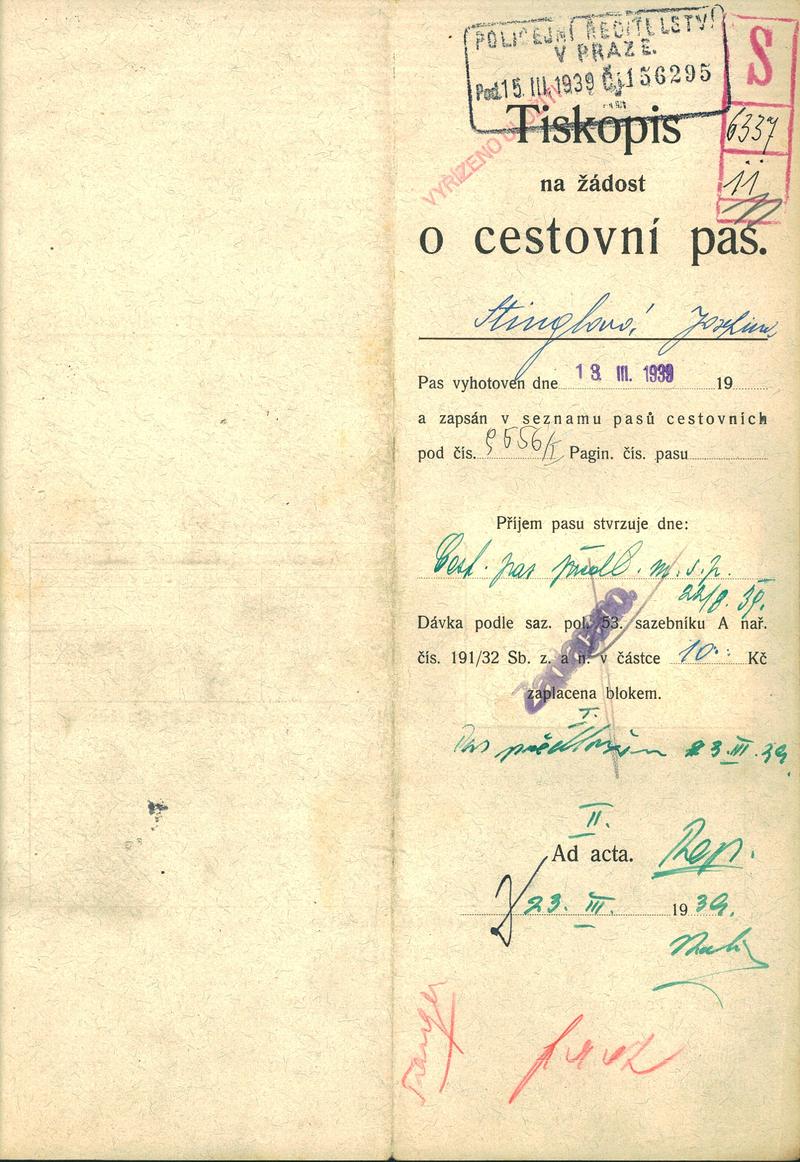 POLICEJNÍ ŘEDITELSTVÍ
V PRAZE.
Pod. 15. III. 1939 Čj. 156295
S
6337
11
VYŘÍZENO ULOŽITI
Tiskopis
na žádost
o cestovní pas.
Stinglová Josefina
Pas vyhotoven dne 13. III. 1939 19
a zapsán v seznamu pasů cestovních
pod čís. 9556/I Pagin. čís. pasu
Příjem pasu stvrzuje dne:
Cest. pas předl. m. s. p.
22/8. 39.
Dávka podle saz. pol. 53. sazebníku A nař.
čís. 191/32 Sb. z. a n. v částce 10 Kč
Zaplaceno.
zaplacena blokem.
I.
Pas předložen 23. III. 39.
II.
Ad acta. Rep.
23. III. 1939.